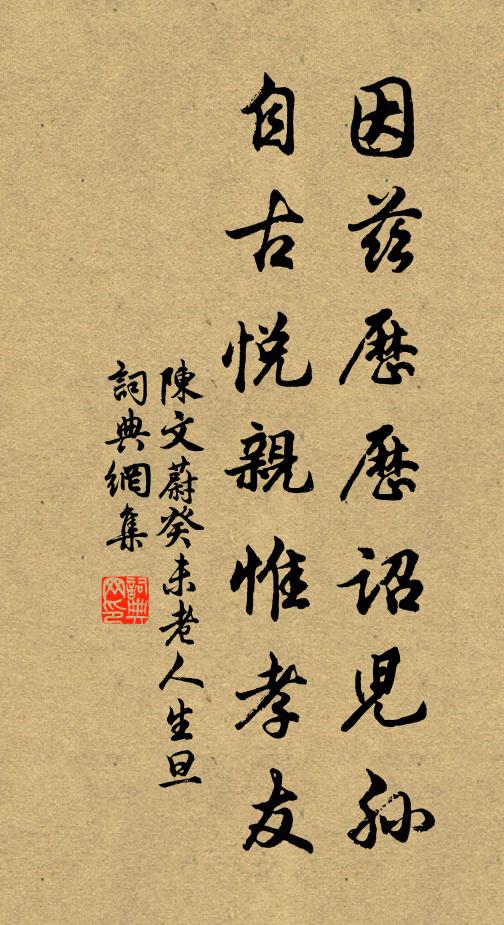 因茲歷歷詔兒孫
自古悅親惟孝友
陳文蔚癸未老人生旦
詞典網集
詞典網印